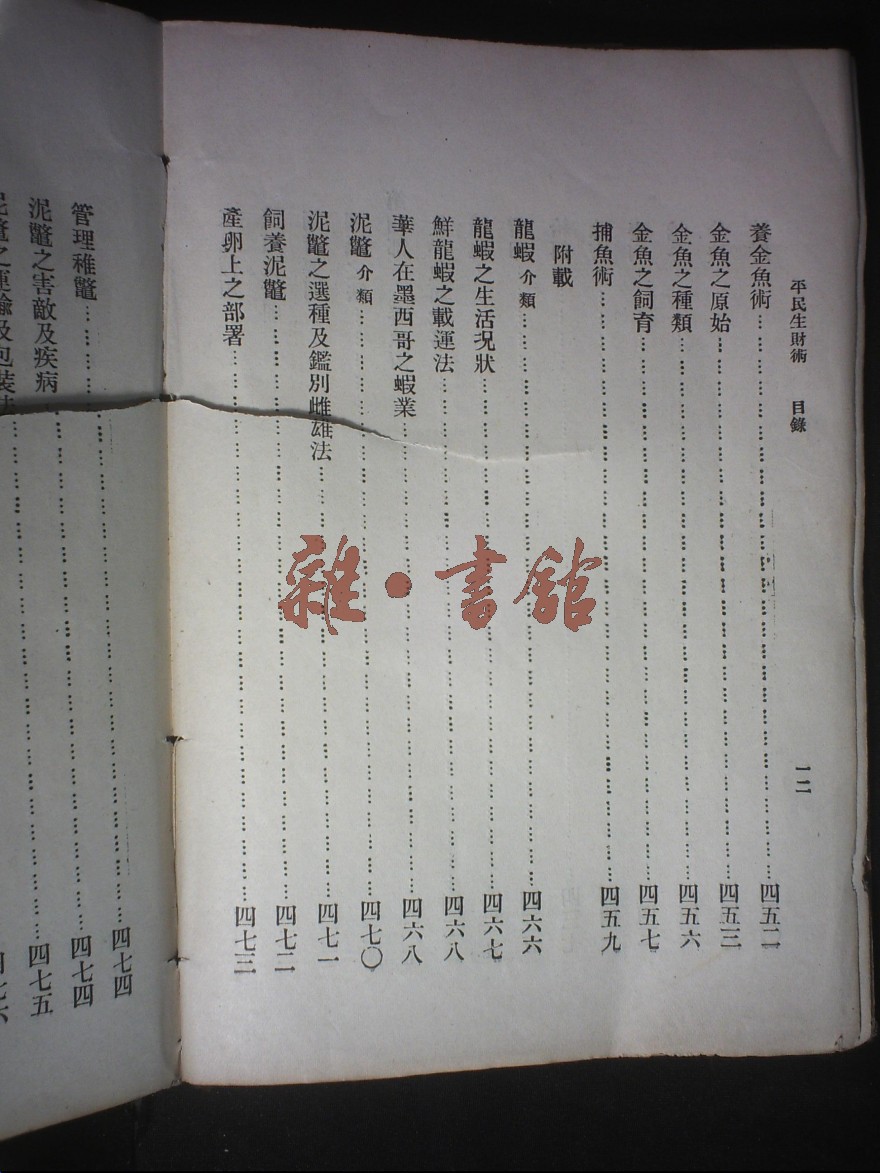 平民生財術 目錄 一二
養金魚術……四五二
金魚之原始……四五三
金魚之種類……四五六
金魚之飼育……四五七
捕魚術……四五九
附載
龍蝦 介類……四六六
龍蝦之生活況狀……四六七
鮮龍蝦之載運法……四六八
華人在墨西哥之蝦業……四六八
泥鼈 介類……四七〇
泥鼈之選種及鑑別雌雄法……四七一
飼養泥鼈……四七二
產卵上之部署……四七三
……四七四
管理稚鼈……四七四
泥鼈之害敵及疾病……四七五
雜·書館